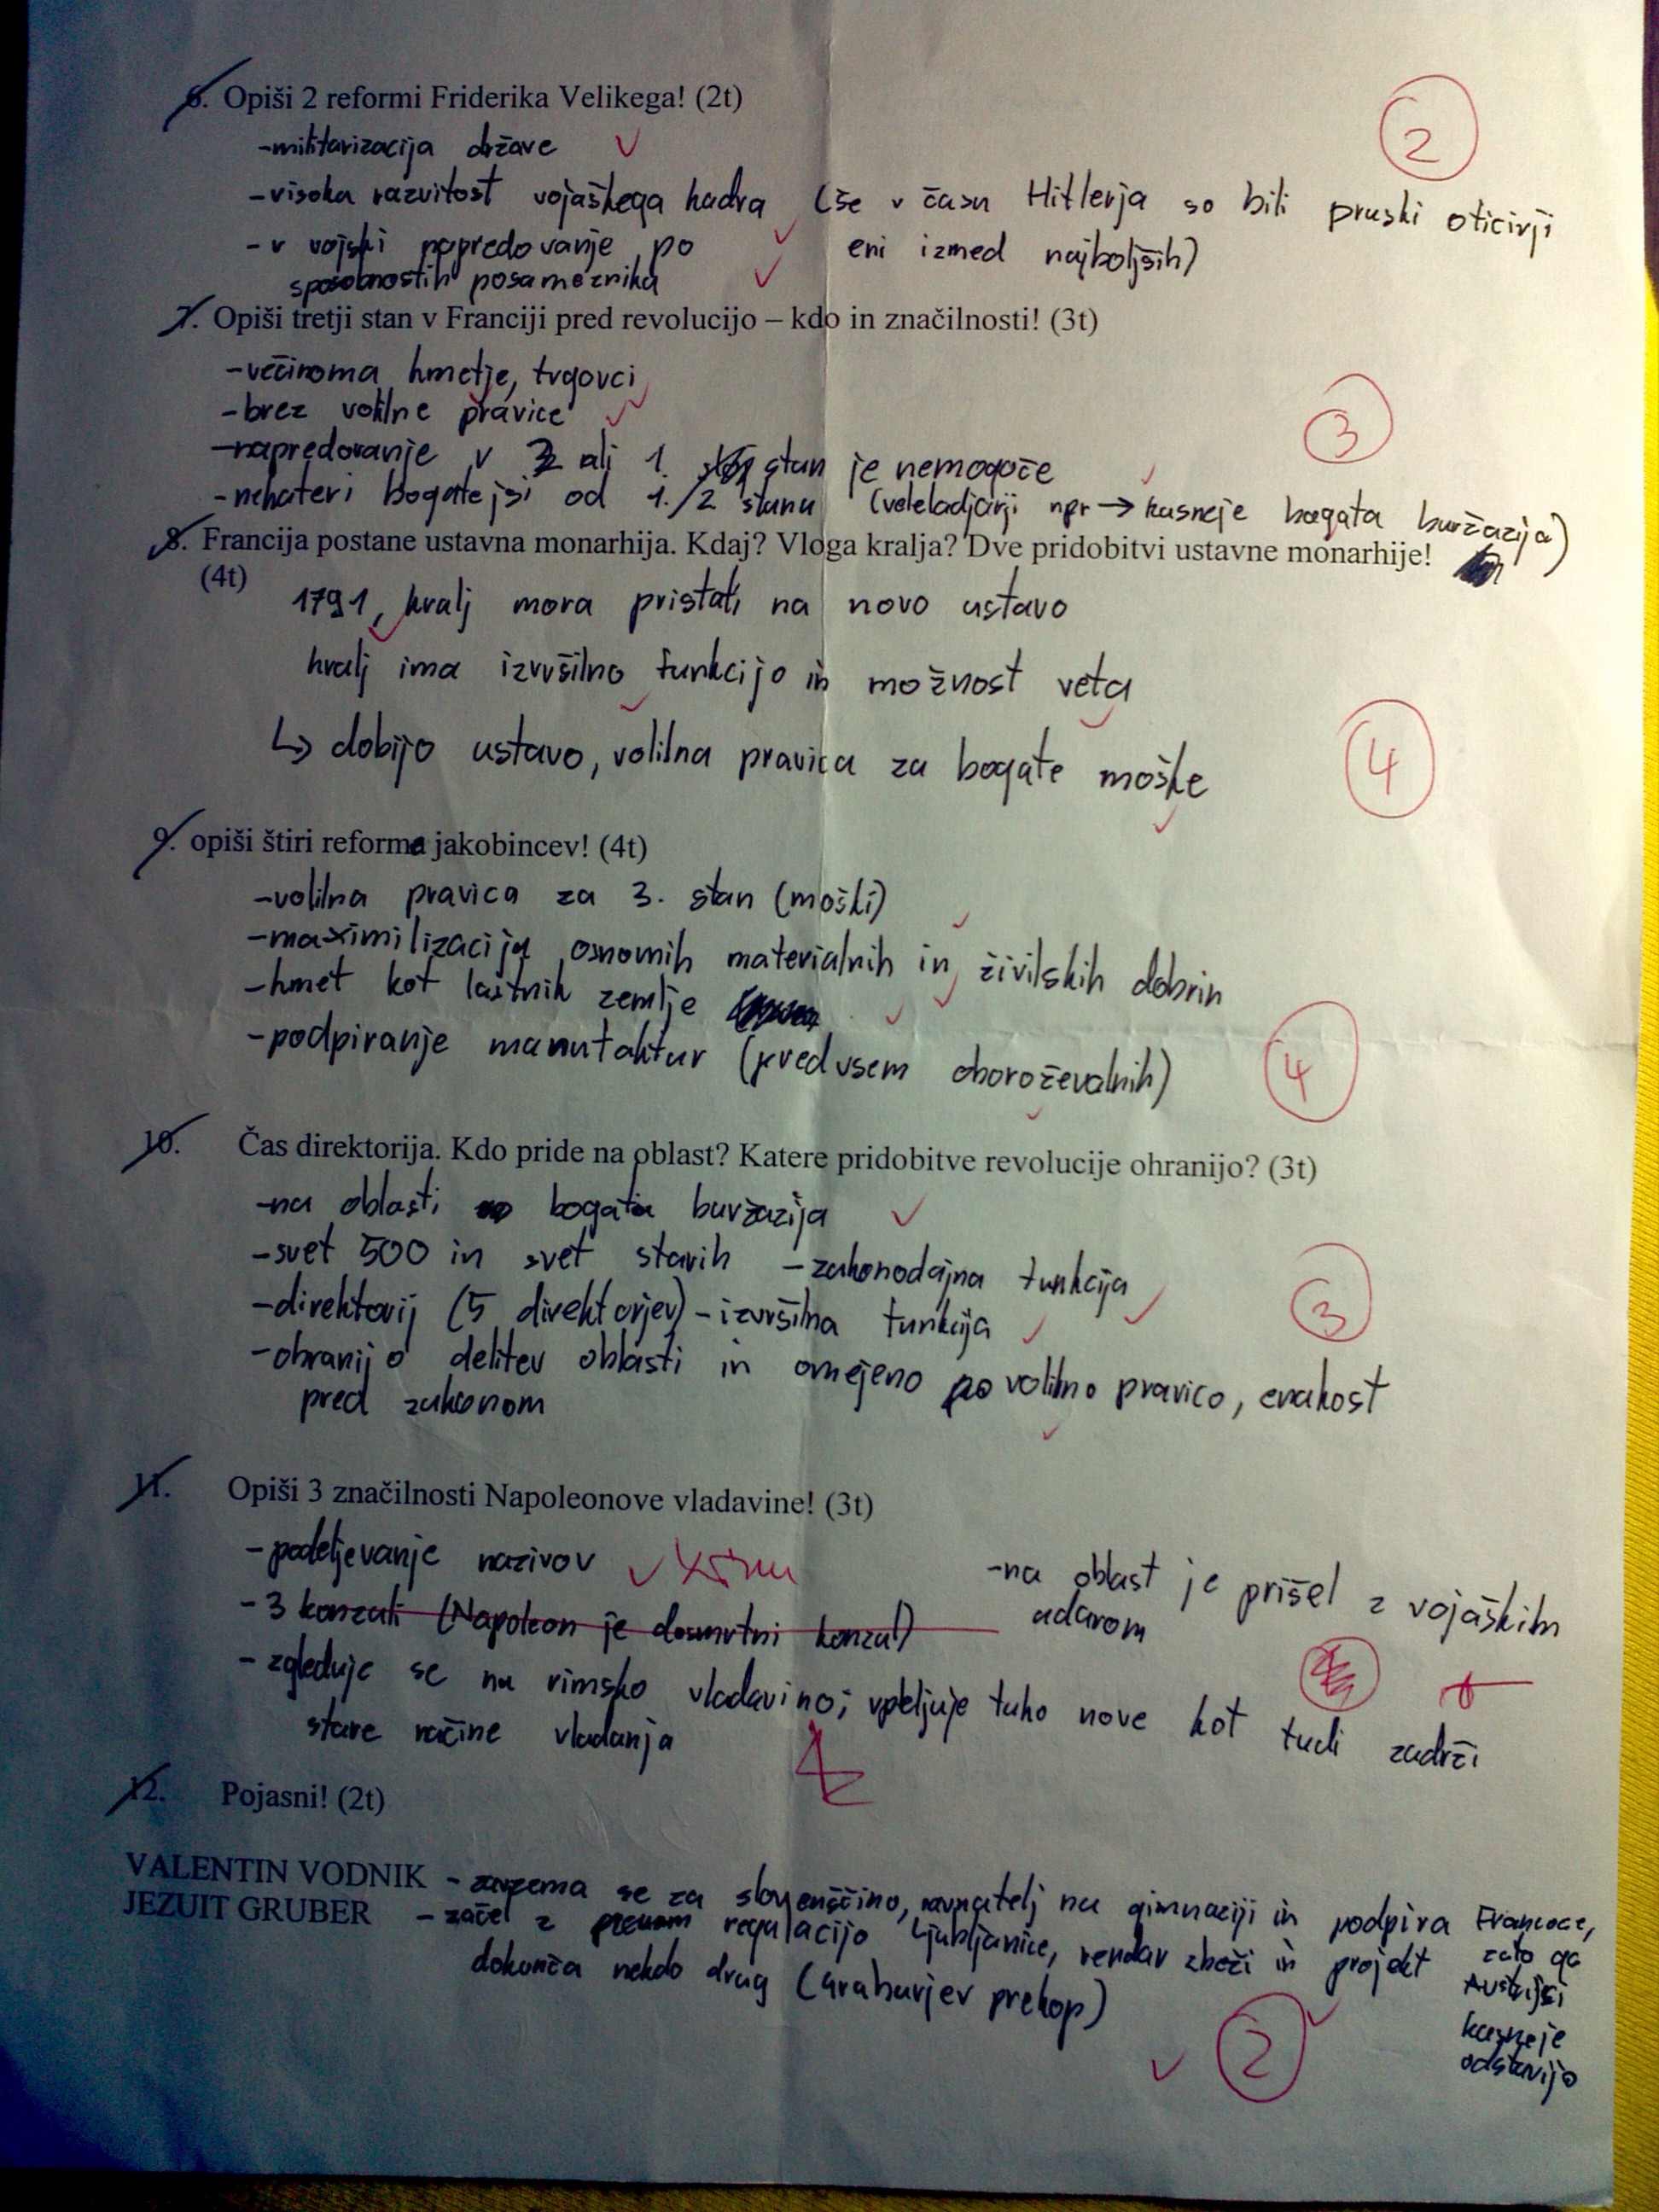 6. Opiši 2 reformi Friderika Velikega! (2t)
2
-militarizacija države
-visoka razvitost vojaškega kadra (še v času Hitlerja so bili pruski oficirji
eni izmed najboljših)
-v vojski napredovanje po
sposobnostih posameznika
7. Opiši tretji stan v Franciji pred revolucijo – kdo in značilnosti! (3t)
-večinoma kmetje, trgovci
-brez volilne pravice
3
-napredovanje v 2 ali 1. stan je nemogoče
-nekateri bogatejši od 1./2 stanu (veleladjarji npr → kasneje bogata buržazija)
8. Francija postane ustavna monarhija. Kdaj? Vloga kralja? Dve pridobitvi ustavne monarhije!
(4t)
1791, kralj mora pristati na novo ustavo
kralj ima izvršilno funkcijo in možnost veta
↳ dobijo ustavo, volilna pravica za bogate moške
4
9. opiši štiri reforme jakobincev! (4t)
-volilna pravica za 3. stan (moški)
-maximilizacija osnovnih materialnih in živilskih dobrin
-kmet kot lastnik zemlje
-podpiranje manufaktur (predvsem oboroževalnih)
4
10. Čas direktorija. Kdo pride na oblast? Katere pridobitve revolucije ohranijo? (3t)
-na oblasti bogata buržazija
-svet 500 in svet starih - zakonodajna funkcija
-direktorij (5 direktorjev) - izvršilna funkcija
3
-ohranijo delitev oblasti in omejeno volilno pravico, enakost
pred zakonom
11. Opiši 3 značilnosti Napoleonove vladavine! (3t)
-podeljevanje nazivov
-na oblast je prišel z vojaškim
udarom
-3 konzuli (Napoleon je dosmrtni konzul)
-zgleduje se na rimsko vladavino; vpeljuje tako nove kot tudi zadrži
stare načine vladanja
12. Pojasni! (2t)
VALENTIN VODNIK - zavzema se za slovenščino, ravnatelj na gimnaziji in podpira Francoze,
zato ga
Austrijci
kasneje
odstavijo
JEZUIT GRUBER - začel z regulacijo Ljubljanice, vendar zbeži in projekt
dokonča nekdo drug (Gruburjev prekop)
2